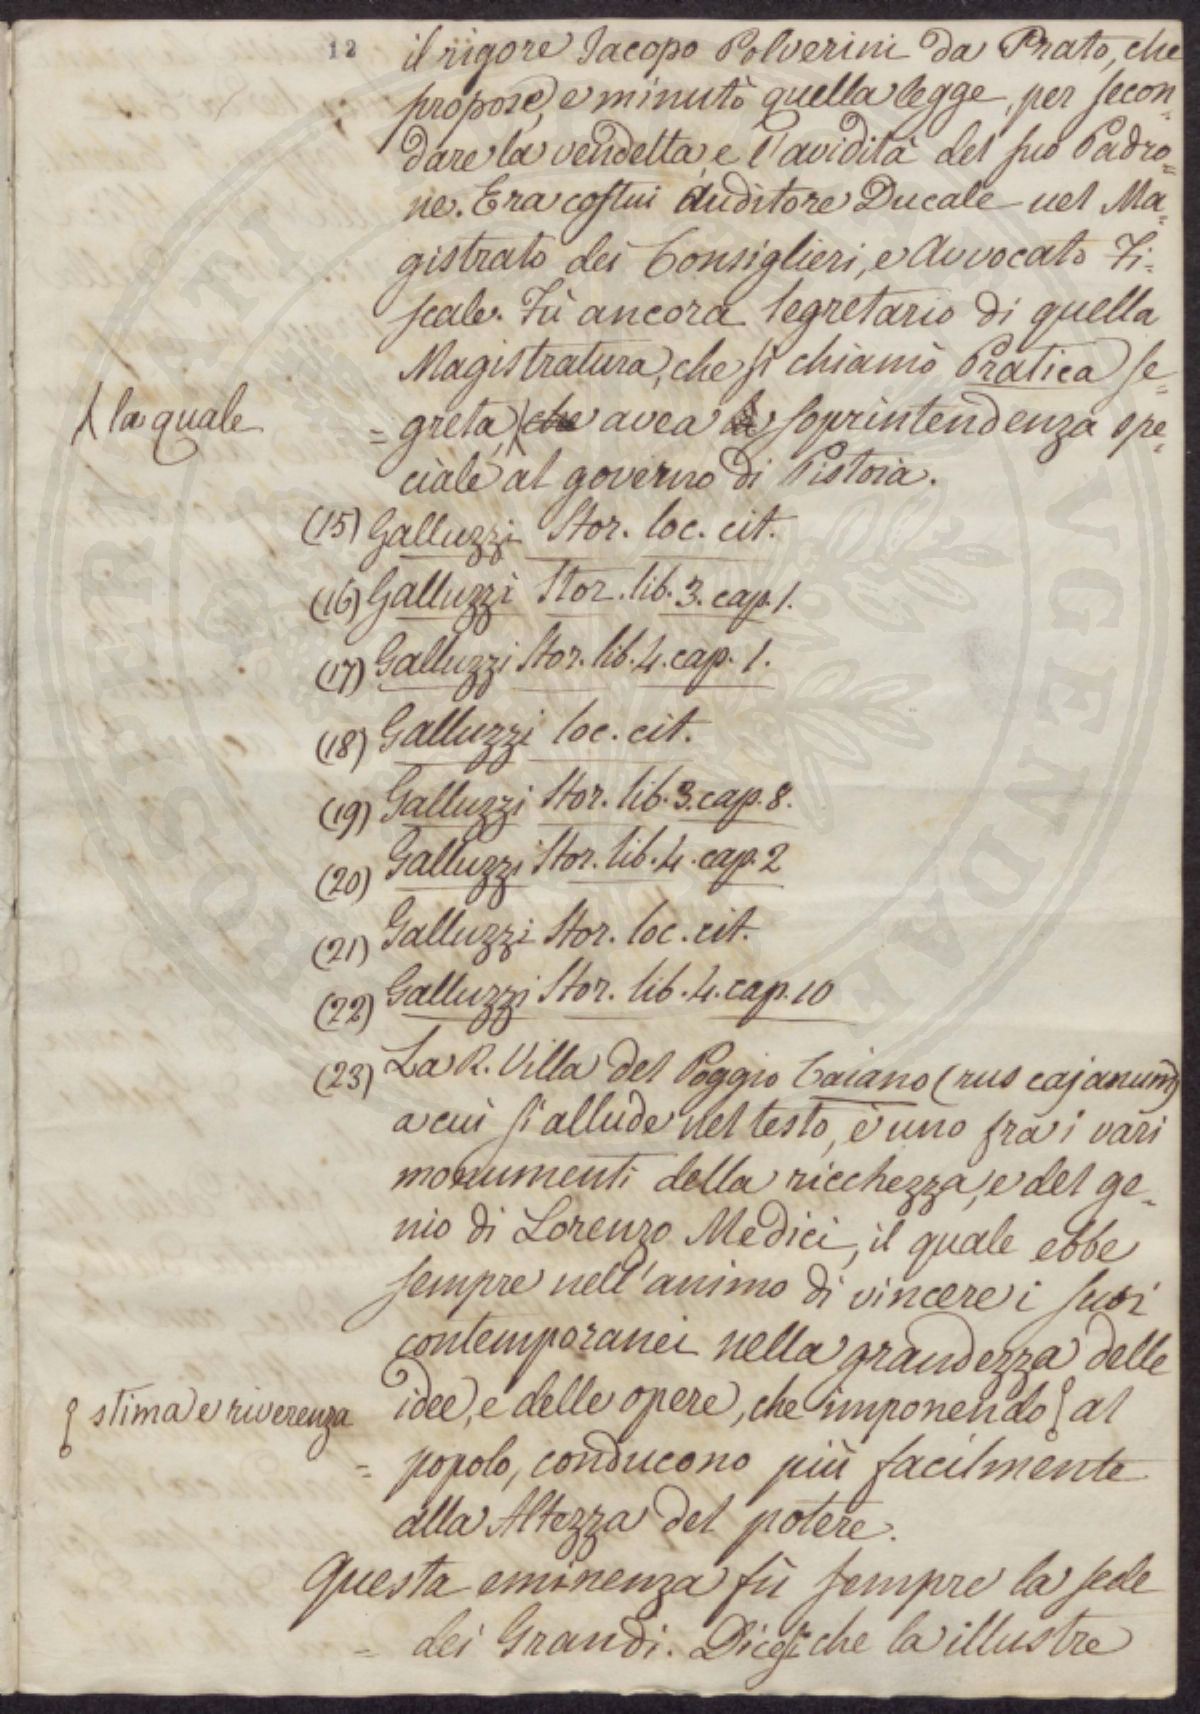 12
il rigore Jacopo Polverini da Prato, che
propose, e minutò quella legge, per secon=
dare la vendetta, e l'avidità del suo Padro=
ne. Era costui Auditore Ducale nel Ma=
gistrato dei Consiglieri, e Avvocato Fi=
scale. Fù ancora Segretario di quella
Magistratura, che si chiamò Pratica se=
la quale
=greta, che avea la soprintendenza spe=
ciale al governo di Pistoia.
(15) Galluzzi Stor. loc. cit.
(16) Galluzzi Stor. lib. 3. cap. 1.
(17) Galluzzi Stor. lib. 4. cap. 1.
(18) Galluzzi loc. cit.
(19) Galluzzi Stor. lib. 3. cap. 8.
(20) Galluzzi Stor. lib. 4. cap. 2
(21) Galluzzi Stor. loc. cit.
(22) Galluzzi Stor. lib. 4. cap. 10
(23) La R. Villa del Poggio Caiano (rus cajanum)
a cui si allude nel testo, è uno fra i vari
monumenti della ricchezza, e del ge=
nio di Lorenzo Medici, il quale ebbe
sempre nell'animo di vincere i suoi
contemporanei nella grandezza delle
idee, e delle opere, che imponendo al
stima e riverenza
= popolo, conducono più facilmente
alla Altezza del potere.
Questa eminenza fù sempre la sede
= dei Grandi. Dicesi che la illustre
PROSPERITATI AVGENDAE